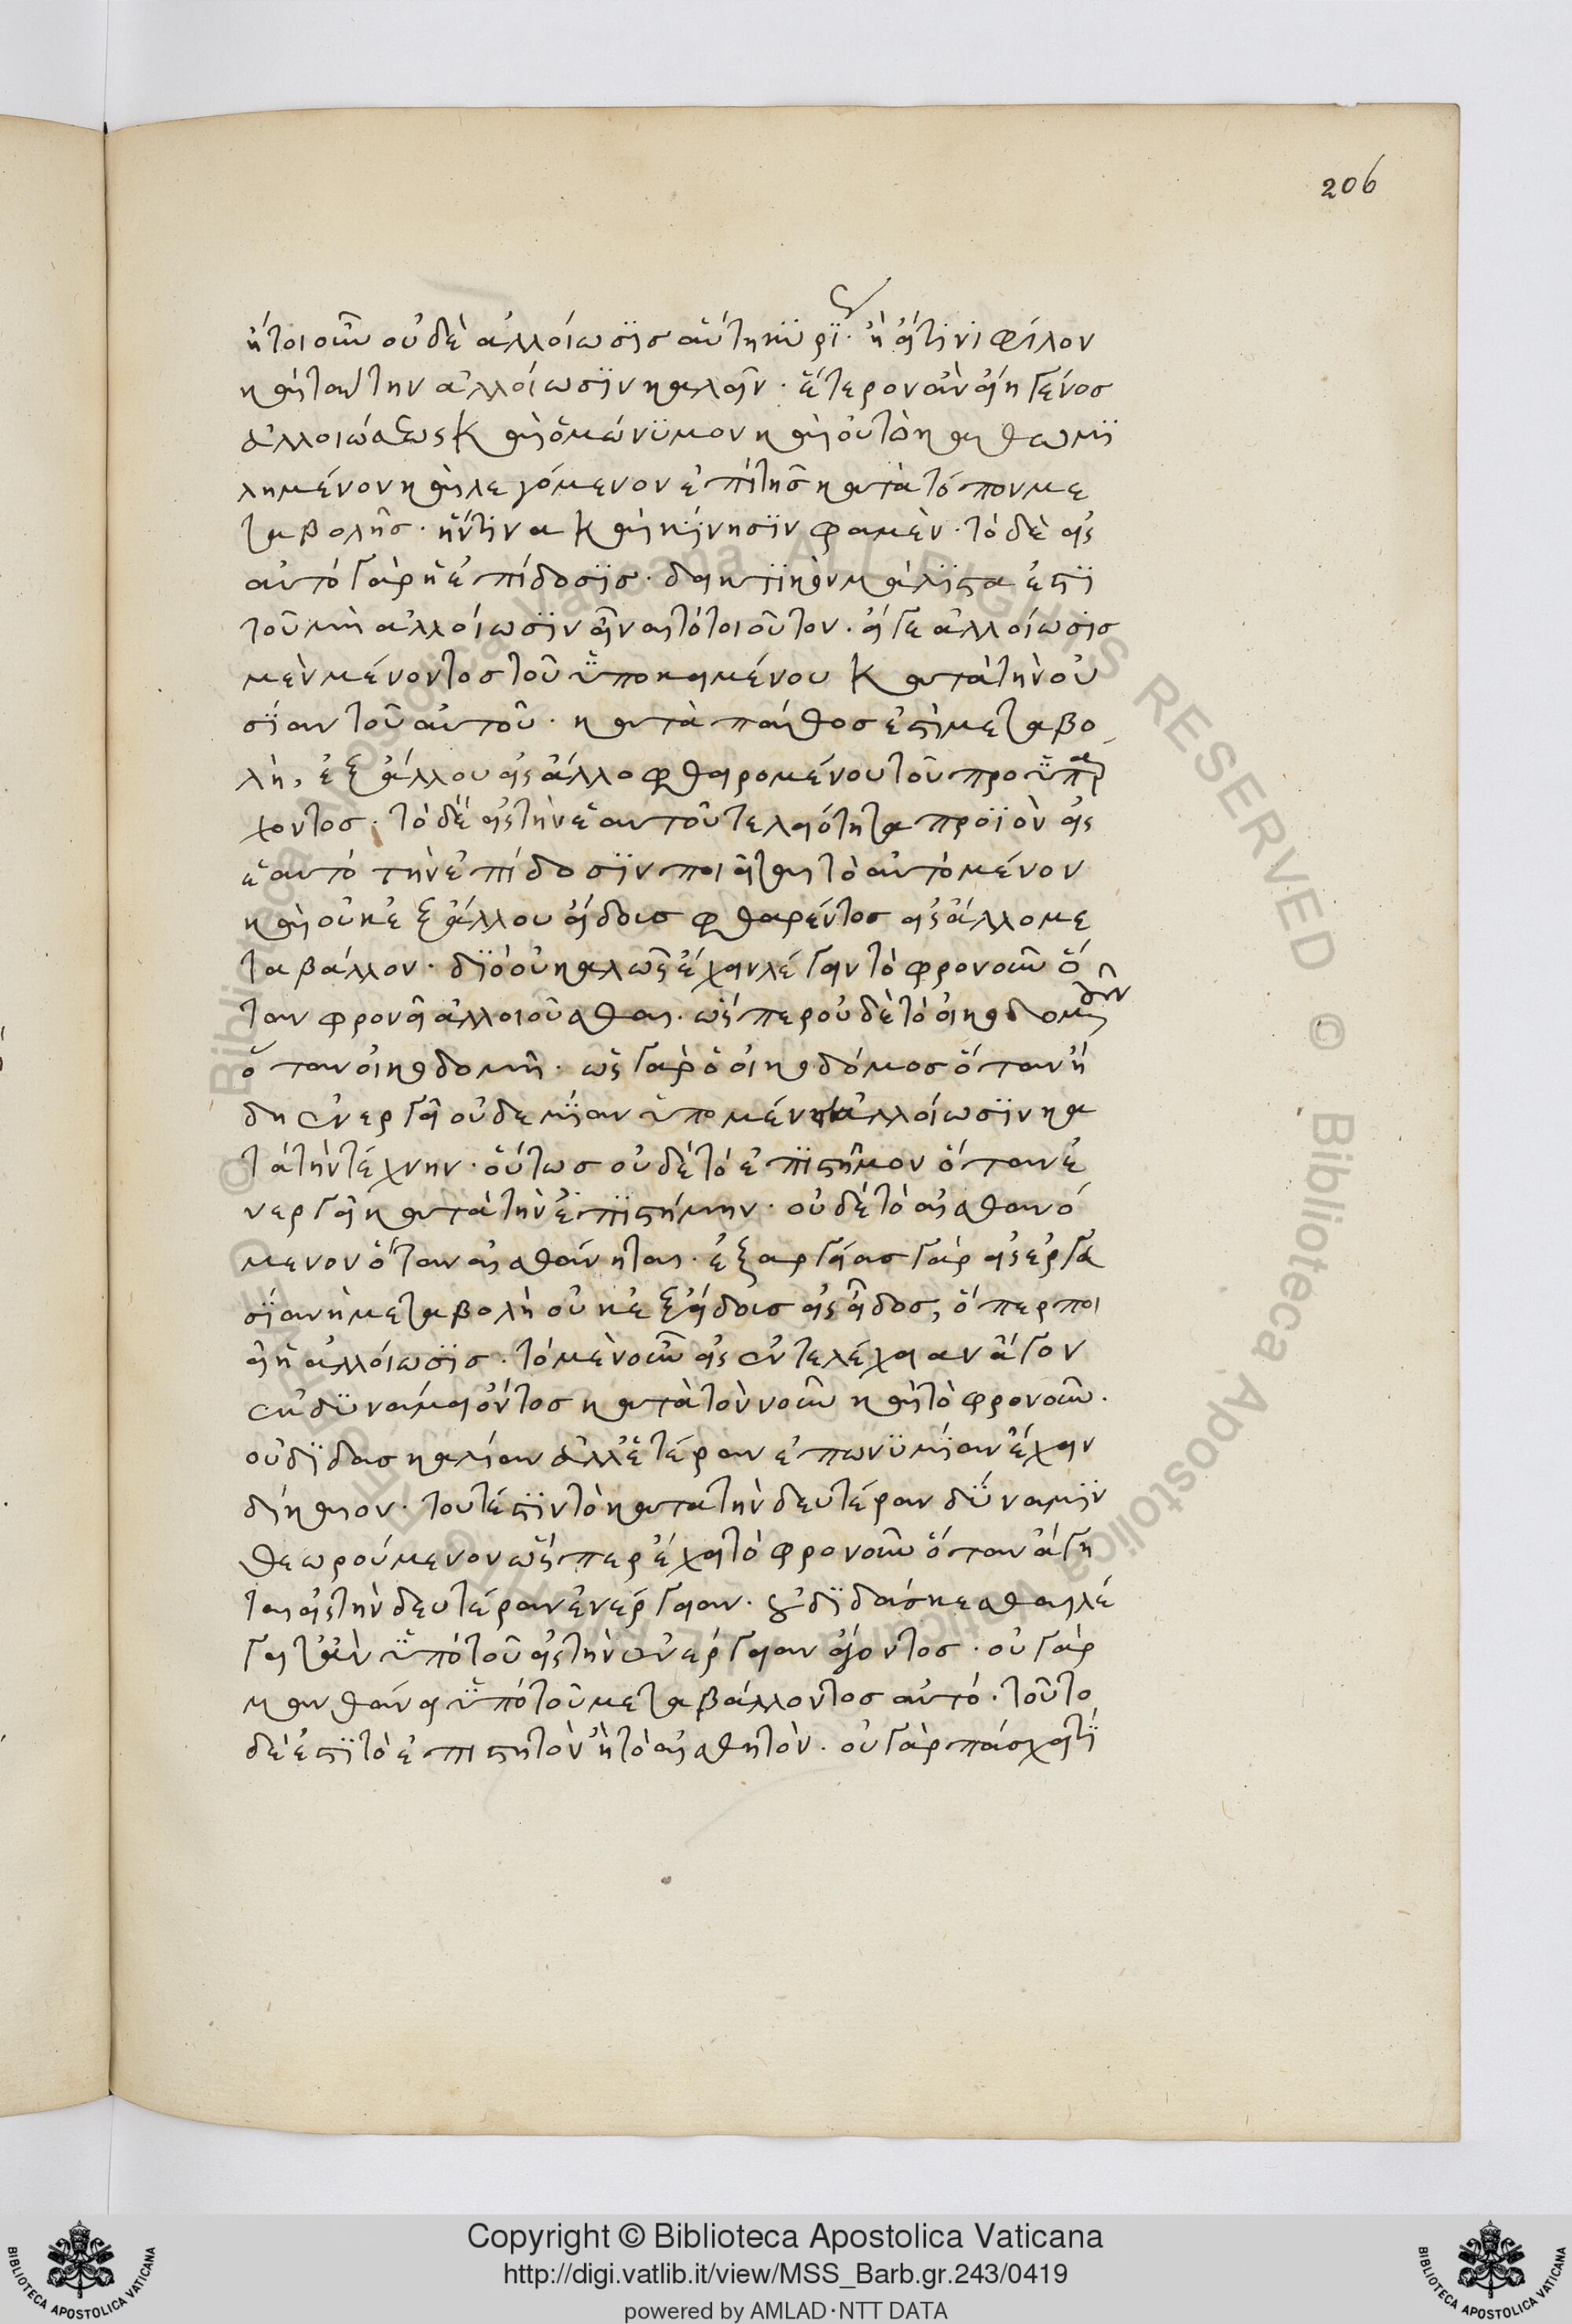 206
ἤτοι οὖν οὐδὲ ἀλλοίωσις αὕτη κυρίως· ἢ εἴ τινι φίλον
καὶ ταύτην ἀλλοίωσιν καλεῖν· ἕτερον ἂν εἴη γένος
ἀλλοιώσεως καὶ ὁμώνυμον καὶ οὐ τὸ καθωμι
λημένον καὶ λεγόμενον ἐπὶ τῆς κατὰ τόπον με
ταβολῆς· ἥντινα καὶ κίνησιν φαμὲν· τὸ δὲ εἰς
αὐτὸ γὰρ ἡ ἐπίδοσις· δεικτικὸν μάλιστα ἐστὶ
τοῦ μὴ ἀλλοίωσιν εἶναι τὸ τοιοῦτον· εἴγε ἀλλοίωσις
μὲν μένοντος τοῦ ὑποκειμένου κατὰ τὴν οὐ
σίαν τοῦ αὐτοῦ· κατὰ πάθος ἐστὶ μεταβο
λὴ, ἐξ ἄλλου εἰς ἄλλο φθειρομένου τοῦ προϋπάρ
χοντος· τὸ δὲ εἰς τὴν ἑαυτοῦ τελειότητα προϊὸν εἰς
ἑαυτὸ τὴν ἐπίδοσιν ποιεῖται τὸ αὐτὸ μένον
καὶ οὐκ ἐξ ἄλλου εἴδους φθαρέντος εἰς ἄλλο με
ταβάλλον· διὸ οὐ καλῶς ἔχειν λέγειν τὸ φρονοῦν ὅ
ταν φρονῇ ἀλλοιοῦσθαι· ὥσπερ οὐδὲ τὸν οἰκοδόμον
ὅταν οἰκοδομῇ· ὡς γὰρ ὁ οἰκοδόμος ὅταν ἤ
δη ἐνεργῇ οὐδεμίαν ὑπομένει ἀλλοίωσιν κα
τὰ τὴν τέχνην· οὕτως οὐδὲ τὸ ἐπιστῆμον ὅταν ἐ
νεργῇ κατὰ τὴν ἐπιστήμην· οὐδὲ τὸ αἰσθανό
μενον ὅταν αἰσθάνηται· ἐξ ἀργείας γὰρ εἰς ἐργα
σίαν ἡ μεταβολὴ οὐκ ἐξ εἴδους εἰς εἶδος, ὅπερ ποι
εῖ ἡ ἀλλοίωσις· τὸ μὲν οὖν εἰς ἐντελέχειαν ἄγον
ἐκ δυνάμει ὄντος κατὰ τὸν νοῦν καὶ τὸ φρονοῦν·
οὐ διδασκαλίαν ἀλλ' ἑτέραν ἐπωνυμίαν ἔχειν
δίκαιον· τουτέστιν τὸ κατὰ τὴν δευτέραν δύναμιν
θεωρούμενον ὥσπερ ἔχει τὸ φρονοῦν ὅταν ἄγη
ται εἰς τὴν δευτέραν ἐνέργειαν· οὐ διδάσκεσθαι λέ
γετ' ἂν ὑπὸ τοῦ εἰς τὴν ἐνέργειαν ἄγοντος· οὐ γὰρ
μανθάνει ὑπὸ τοῦ μεταβάλλοντος αὐτό· τοῦτο
δὲ ἐστὶ τὸ ἐπιστητὸν ἢ τὸ αἰσθητὸν· οὐ γὰρ πάσχει τί
Copyright © Biblioteca Apostolica Vaticana
http://digi.vatlib.it/view/MSS_Barb.gr.243/0419
powered by AMLAD·NTT DATA